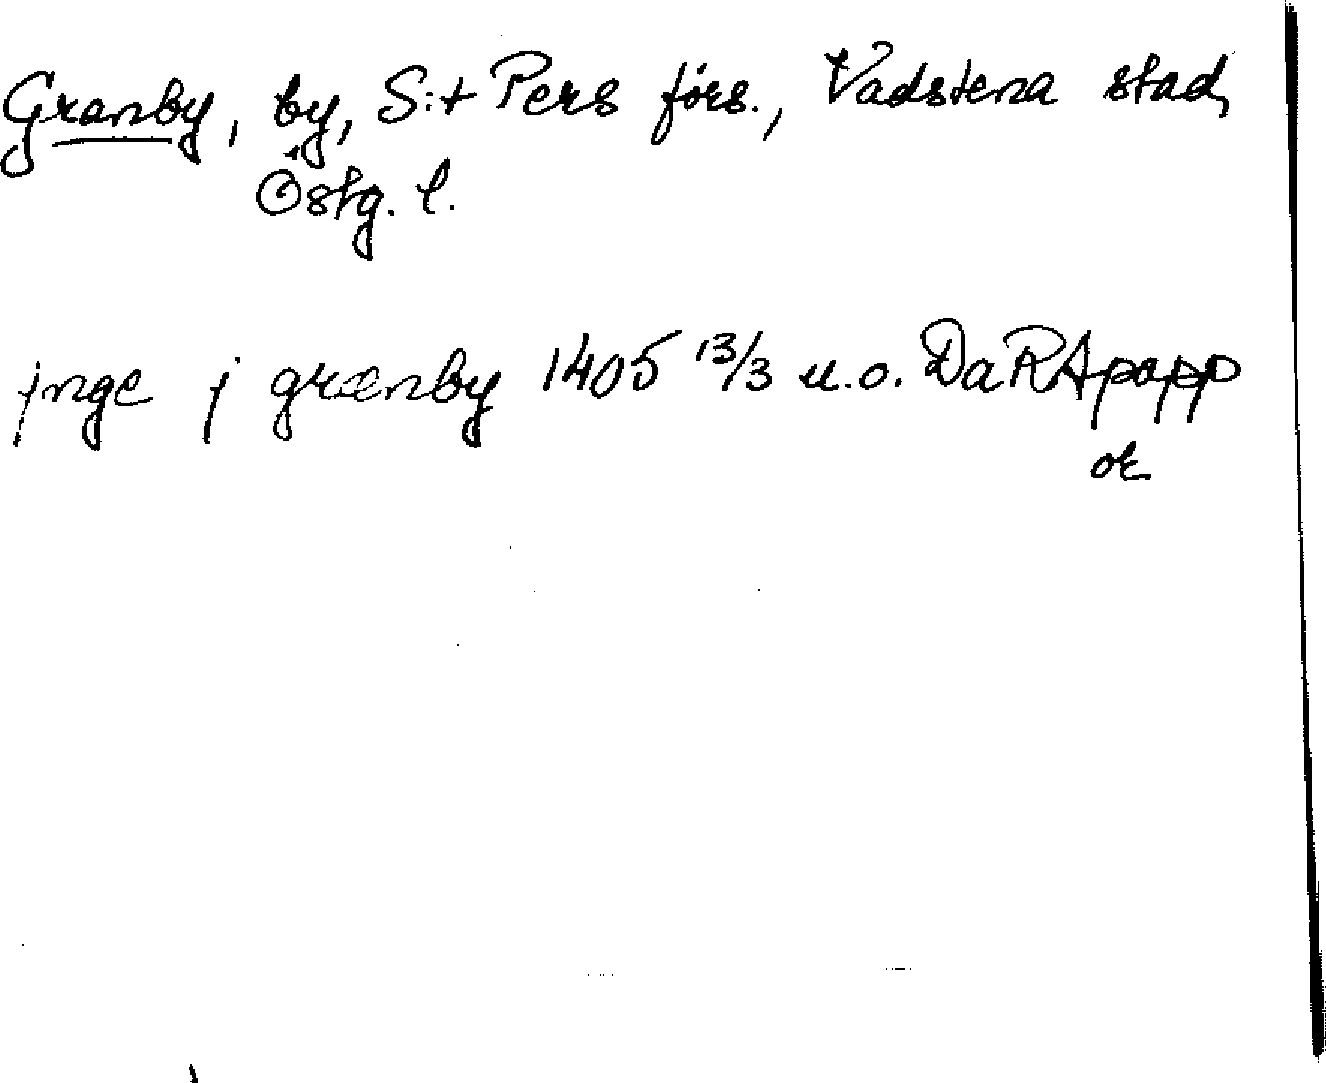 Granby, by, S:t Pers förs., Vadstena stad,
Östg. l.
jnge j grænby 1405 13/3 u.o. DaRApapp
or.